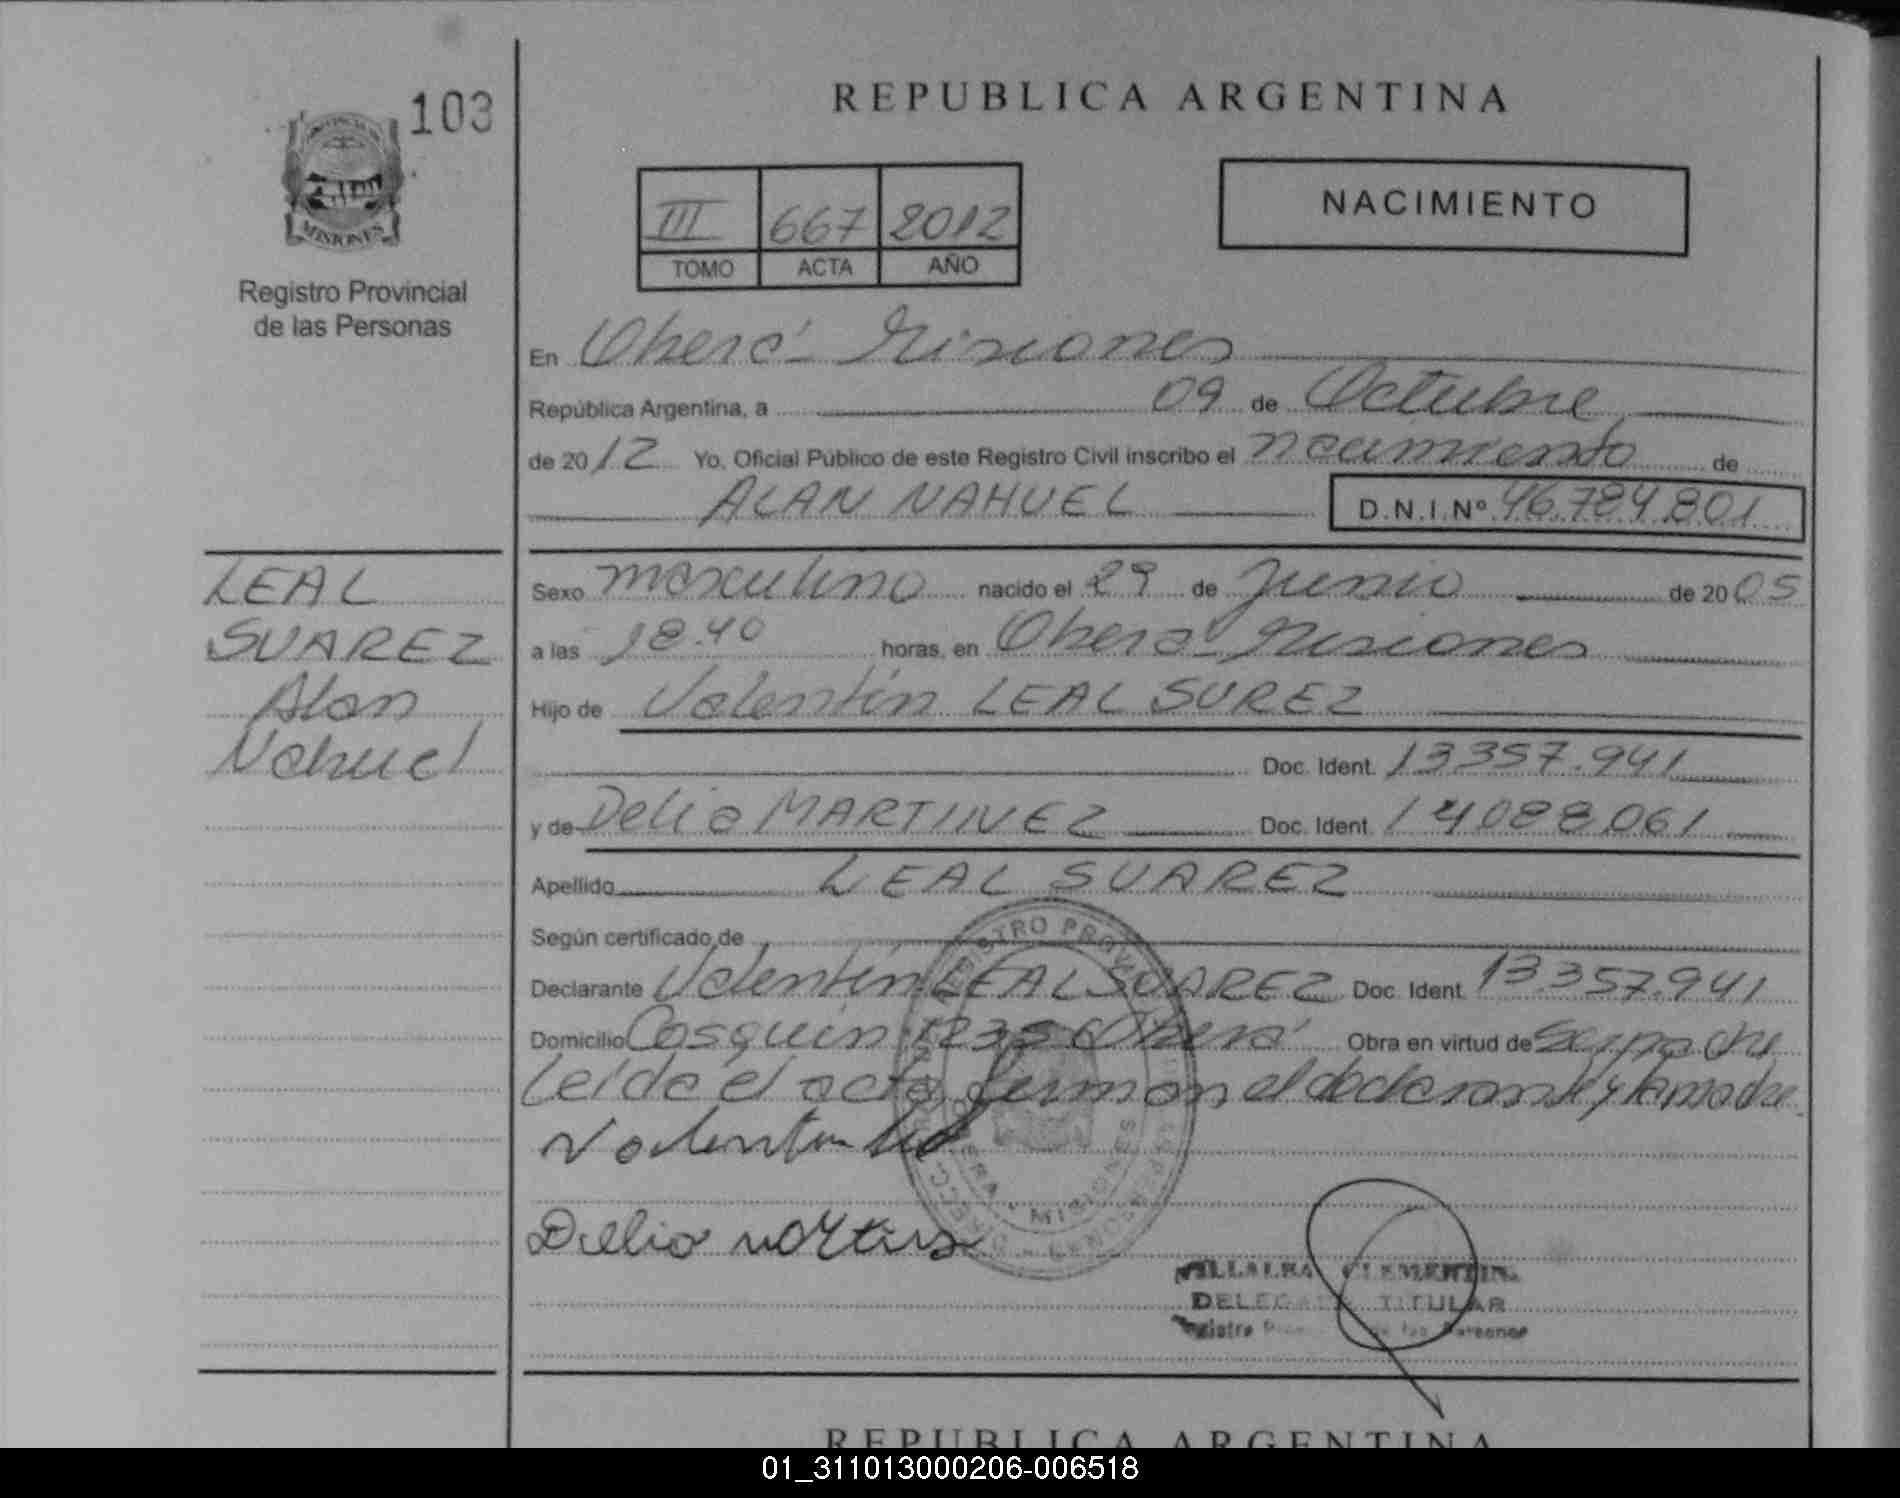 103
REPUBLICA ARGENTINA
MISIONES
Registro Provincial
de las Personas
III 667 2012
TOMO ACTA AÑO
NACIMIENTO
En Oberá - Misiones
República Argentina, a 09 de Octubre
de 2012 Yo, Oficial Público de este Registro Civil inscribo el nacimiento de
ALAN NAHUEL D.N.I.Nº 46.784.801
LEAL
SUAREZ
Alan
Nahuel
Sexo masculino nacido el 29 de Junio de 2005
a las 18.40 horas, en Oberá - Misiones
Hijo de Valentín LEAL SUREZ
Doc. Ident. 13357.941
y de Delia MARTIINEZ Doc. Ident. 14088061
Apellido LEAL SUAREZ
Según certificado de
Declarante Valentín LEAL SUAREZ Doc. Ident. 13.357.941
Domicilio Cosquin 1235 Oberá Obra en virtud de
Leída el acta firman el declarante y la madre
Delia
VILLALBA CLEMENTIN
DELEGADA TITULAR
Registro de las Personas
REPUBLICA ARGENTINA
01_311013000206-006518